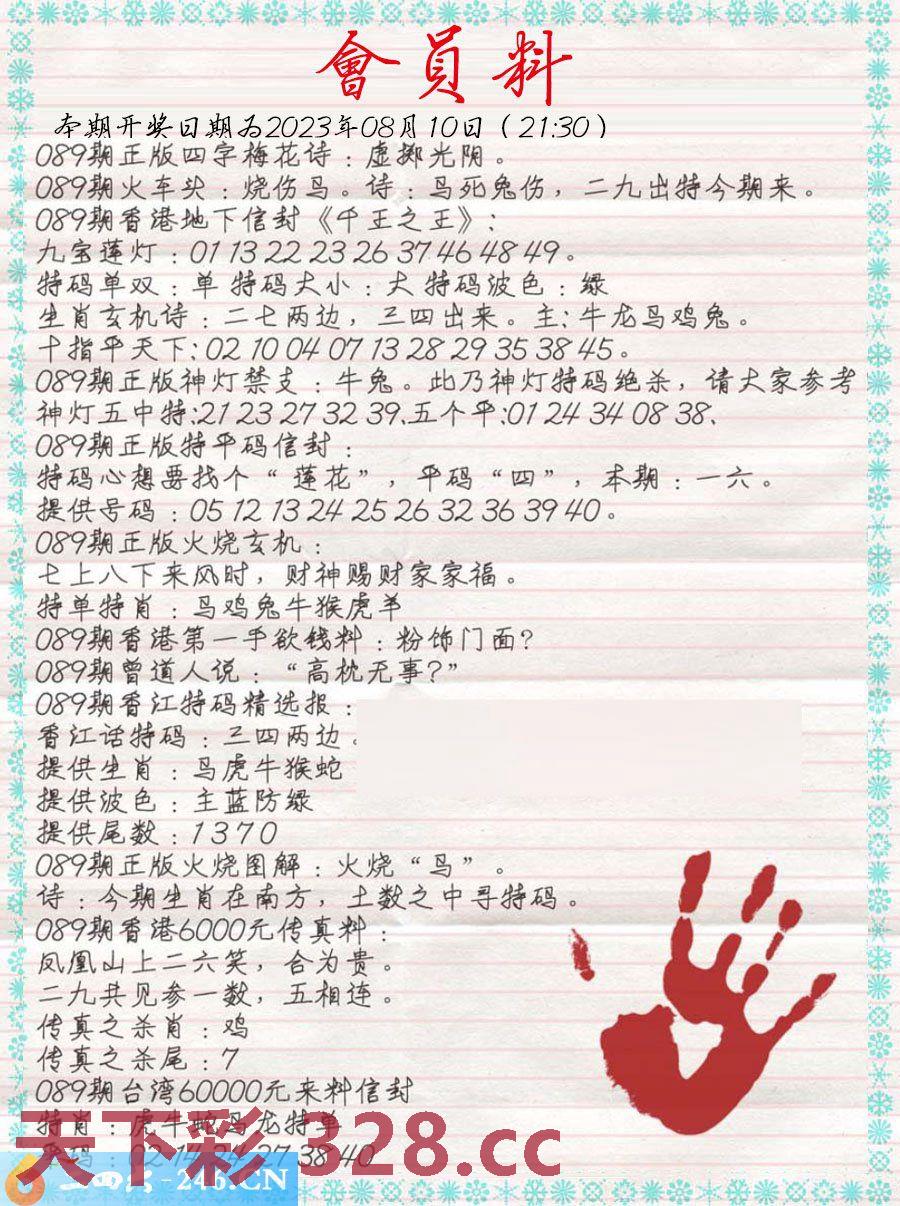 會員料
本期开奖日期为2023年08月10日（21:30）
089期正版四字梅花诗：虚掷光阴。
089期火车头：烧伤鸟。诗：鸟死兔伤，二九出特今期来。
089期香港地下信封《千王之王》:
九宝莲灯：01 13 22 23 26 37 46 48 49。
特码单双：单 特码大小：大 特码波色：绿
生肖玄机诗：二七两边，三四出来。主: 牛龙鸟鸡兔。
十指平天下: 02 10 04 07 13 28 29 35 38 45。
089期正版神灯禁支：牛兔。此乃神灯特码绝杀，请大家参考
神灯五中特:21 23 27 32 39.五个平:01 24 34 08 38、
089期正版特平码信封：
特码心想要找个“ 莲花”，平码“四”，本期：一六。
提供号码：05 12 13 24 25 26 32 36 39 40。
089期正版火烧玄机：
七上八下来风时，财神赐财家家福。
特单特肖：鸟鸡兔牛猴虎羊
089期香港第一手欲钱料：粉饰门面?
089期曾道人说：“高枕无事?”
089期香江特码精选报：
香江话特码：三四两边。
提供生肖：鸟虎牛猴蛇
提供波色：主蓝防绿
提供尾数：1 3 7 0
089期正版火烧图解：火烧“鸟”。
诗：今期生肖在南方，土数之中寻特码。
089期香港6000元传真料：
凤凰山上二六笑，合为贵。
二九共见参一数，五相连。
传真之杀肖：鸡
传真之杀尾：7
089期台湾60000元来料信封
特肖：虎牛蛇鸟龙特单
码：02 14 24 27 38 40
天下彩 328.cc
-246.CN